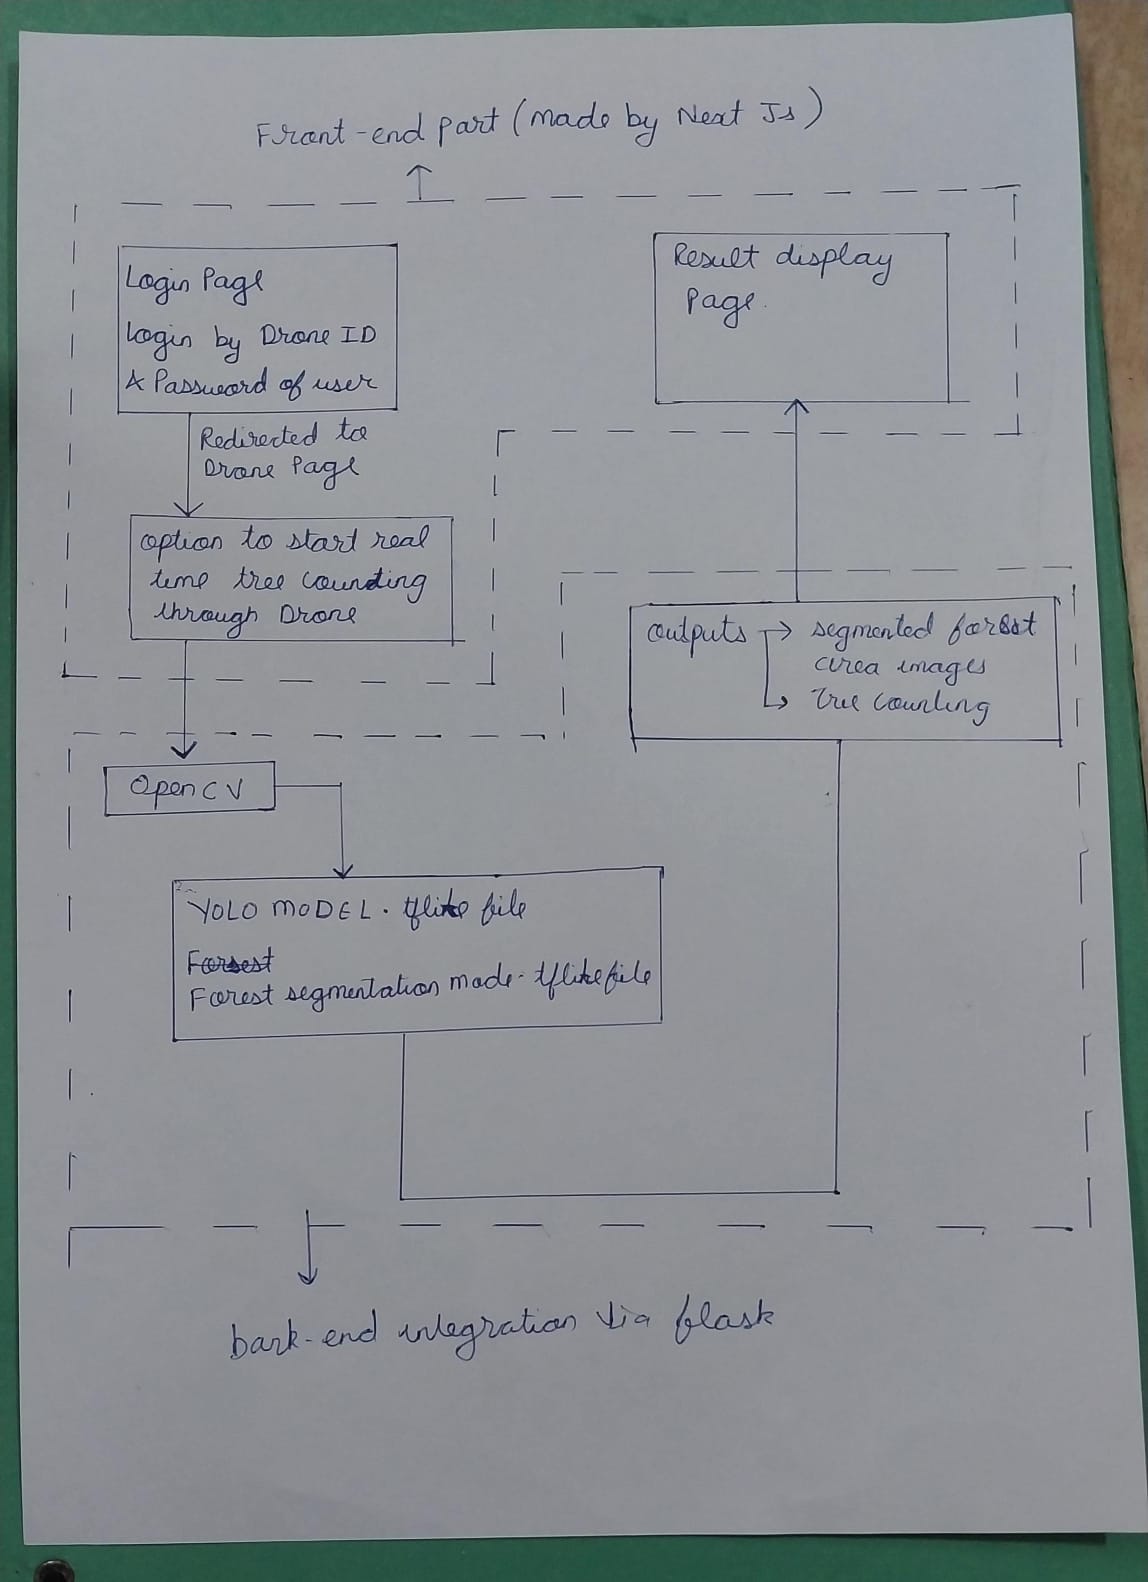 Front-end part (made by Next Js)
Login Page
Login by Drone ID
& Password of user
Redirected to
Drone Page
option to start real
time tree counting
through Drone
Result display
Page.
outputs → segmented forest
area images
→ Tree counting
Open CV
YOLO MODEL. tflite file
Forsest
Forest segmentation made. tflike file
back-end integration via flask